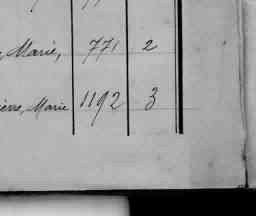 Marie, 771 2
Marie 1192 3